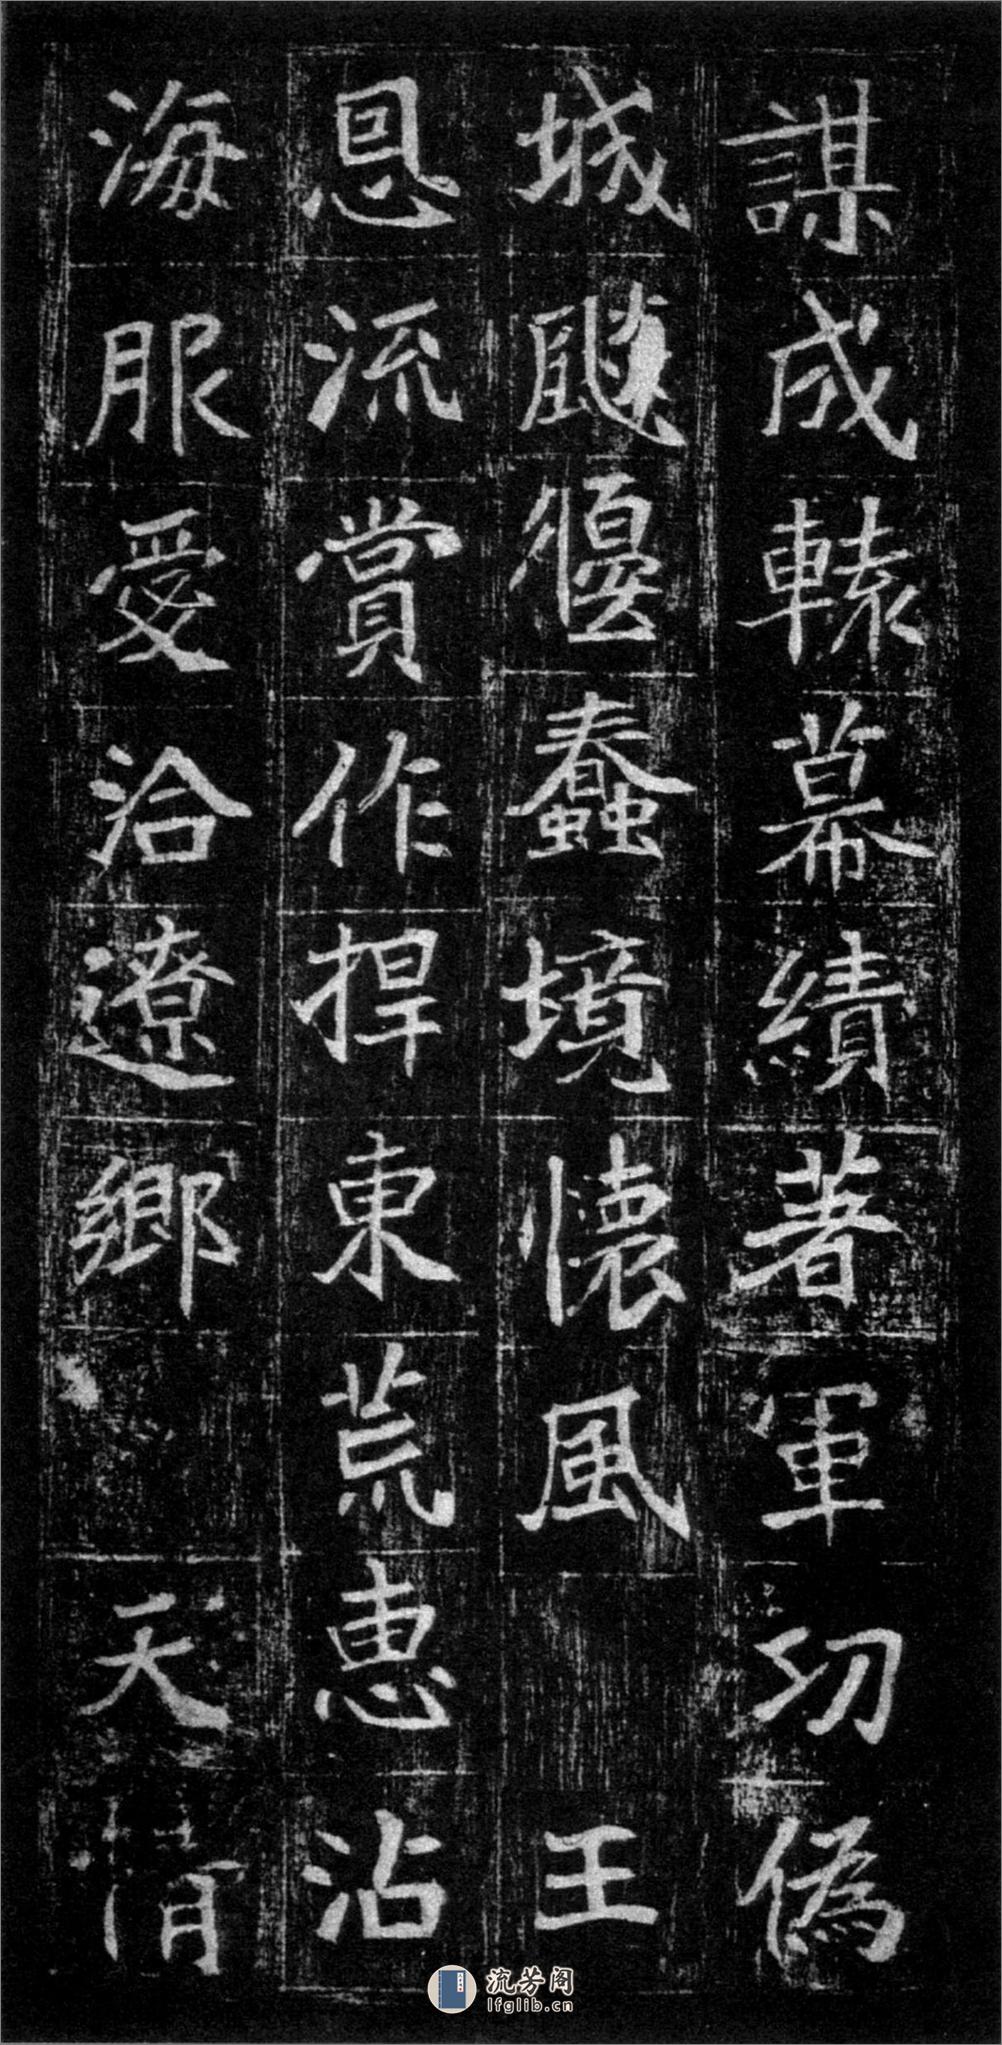 謀成轅幕績著軍功偽
城偃蠢境懷風王
恩流賞作捍東荒惠沾
海服愛洽遼鄉天情
流芳阁
lfglib.cn